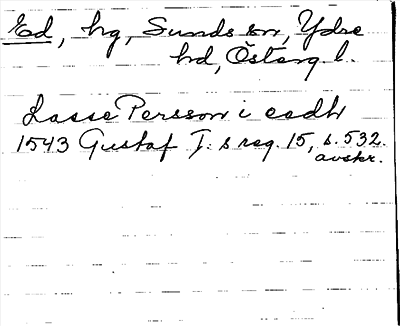 Ed, hg, Sunds sn, Ydre
hd, Österg. l.
Lasse Persson i eedh
1543 Gustaf I:s reg. 15, s. 532.
avskr.